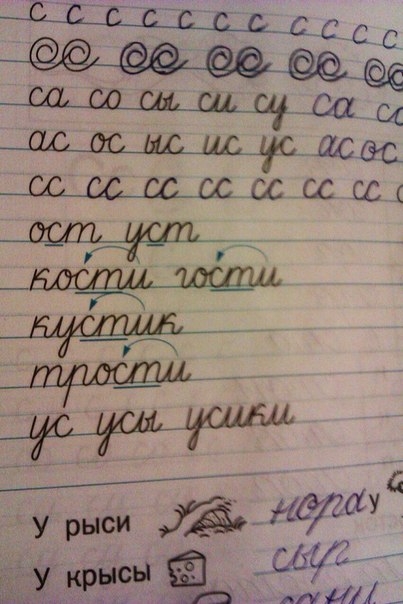 с с с с с с с с с с
са со сы си су са со
ас ос ыс ис ус ас ос
сс сс сс сс сс сс сс
ост уст
кости гости
кустик
трости
ус усы усики
У рыси нора У
У крысы сыр
сани